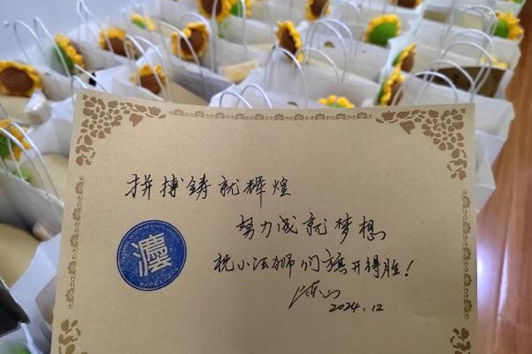 拼搏铸就辉煌
努力成就梦想
祝小法狮们旗开得胜!
2024.12